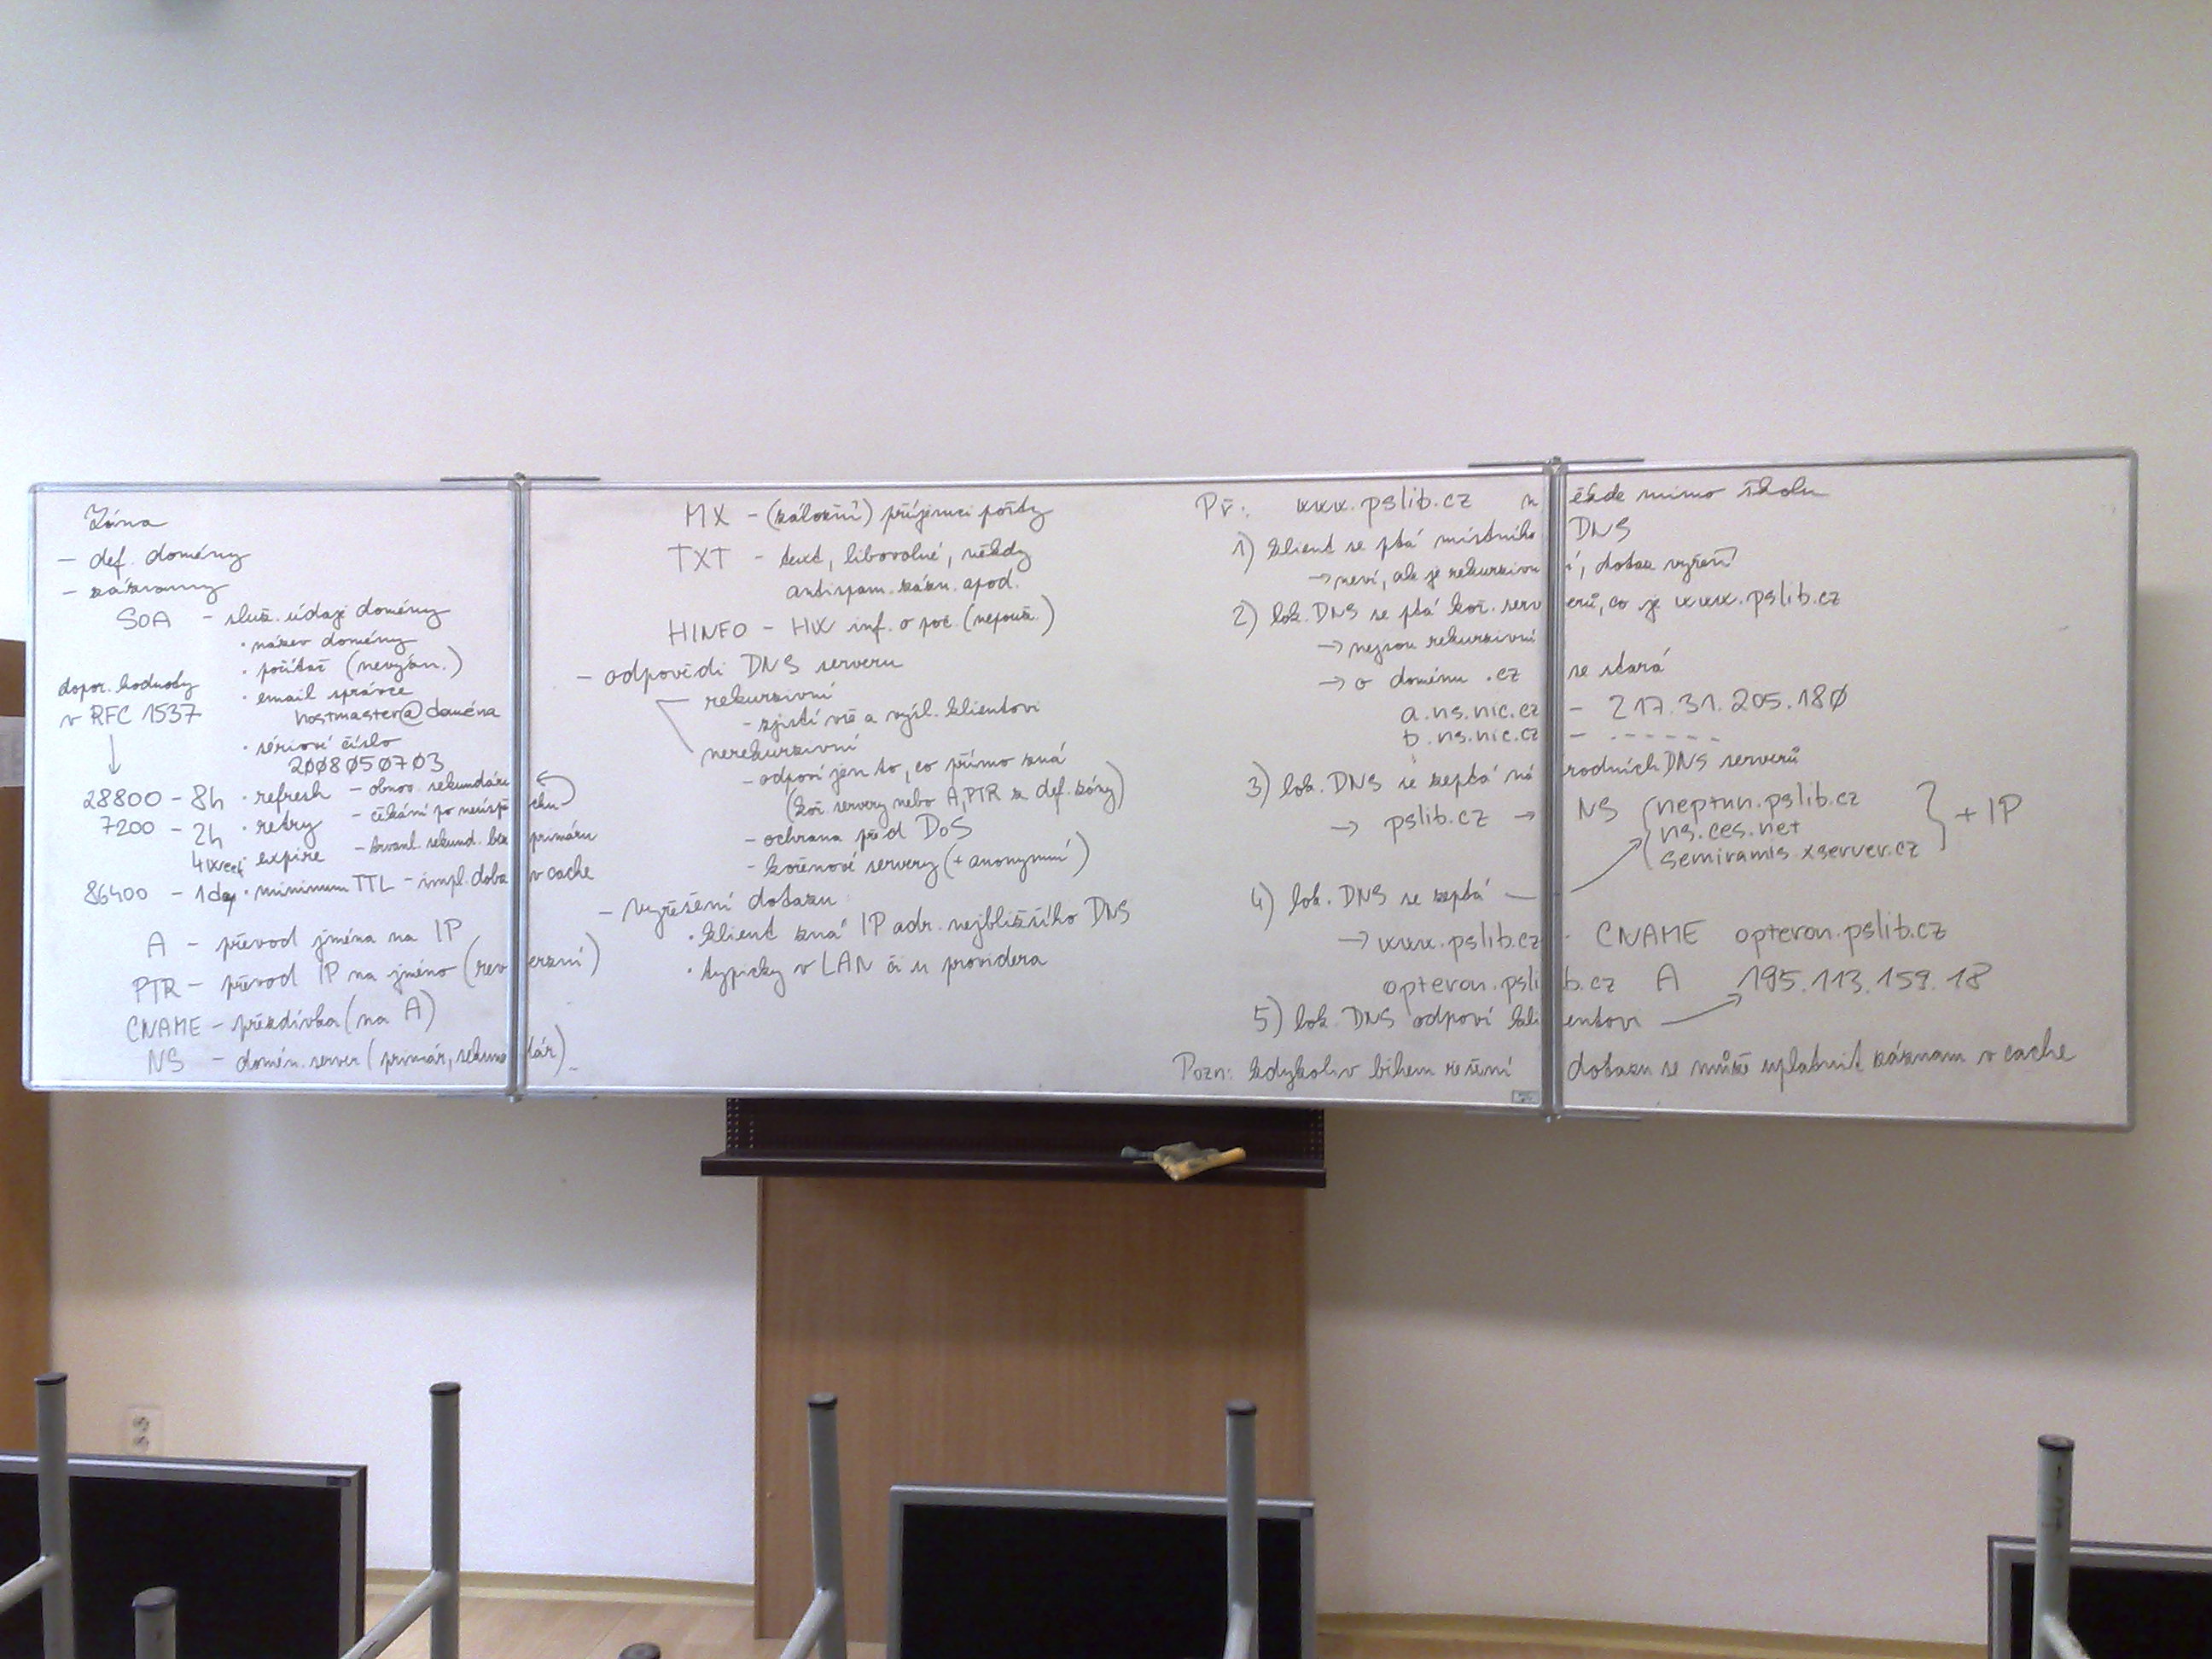 Zóna
- def. domény
- záznamy
SOA - služ. údaje domény
· název domény
· počítač (nevýzn.)
· email správce
hostmaster@doména
· sériové číslo
2008050703
dopor. hodnoty
v RFC 1537
28800 - 8h · refresh - obnov. sekundáru
7200 - 2h · retry - čekání po neúspěchu
4 week · expire - trvanl. sekund. bez primáru
86400 - 1 day · minimum TTL - impl. doba v cache
A - převod jména na IP
PTR - převod IP na jméno (reverzní)
CNAME - přezdívka (na A)
NS - domén. server (primár, sekundár)
MX - (záložní) příjemci pošty
TXT - text, libovolné, někdy
antispam. zázn. apod.
HINFO - HW inf. o poč. (nepouž.)
- odpovědi DNS serveru
rekurzivní
- zjistí vše a vyšl. klientovi
nerekurzivní
- odpoví jen to, co přímo zná
(koř. servery nebo A, PTR z def. zóny)
- ochrana před DoS
- kořenové servery (+ anonymní)
- vyřešení dotazu
· klient zná IP adr. nejbližšího DNS
· typicky v LAN či u providera
Př: www.pslib.cz někde mimo školu
1) klient se ptá místního DNS
→ neví, ale je rekurzivní, dotaz vyřeší
2) lok. DNS se ptá koř. serverů, co je www.pslib.cz
→ nejsou rekurzivní
→ o doménu .cz se stará
a.ns.nic.cz - 217.31.205.180
b.ns.nic.cz - - - - - - -
3) lok. DNS se zeptá národních DNS serverů
→ pslib.cz → NS neptun.pslib.cz
ns.ces.net
semiramis.xserver.cz
} + IP
4) lok. DNS se zeptá
→ www.pslib.cz - CNAME opteron.pslib.cz
opteron.pslib.cz A 195.113.159.18
5) lok. DNS odpoví klientovi
Pozn: kdykoliv během řešení dotazu se může uplatnit záznam v cache